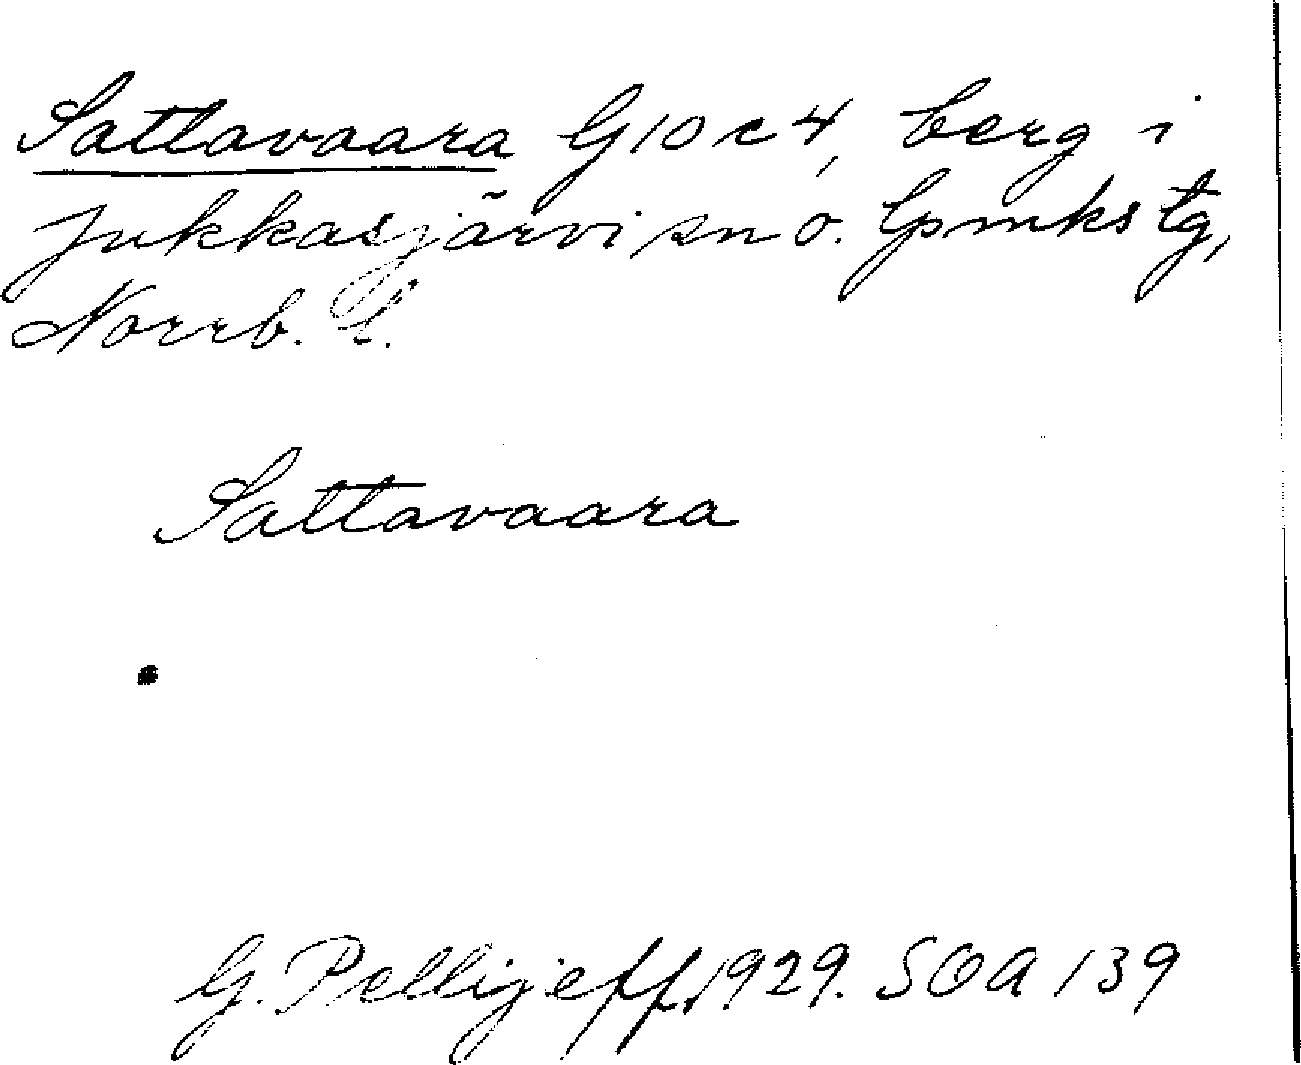 Sattavaara G10c4, berg i
Jukkasjärvi sn o. lpmks tg,
Norrb. l.
Sattavaara
G. Pellijeff, 1929. SOA 139